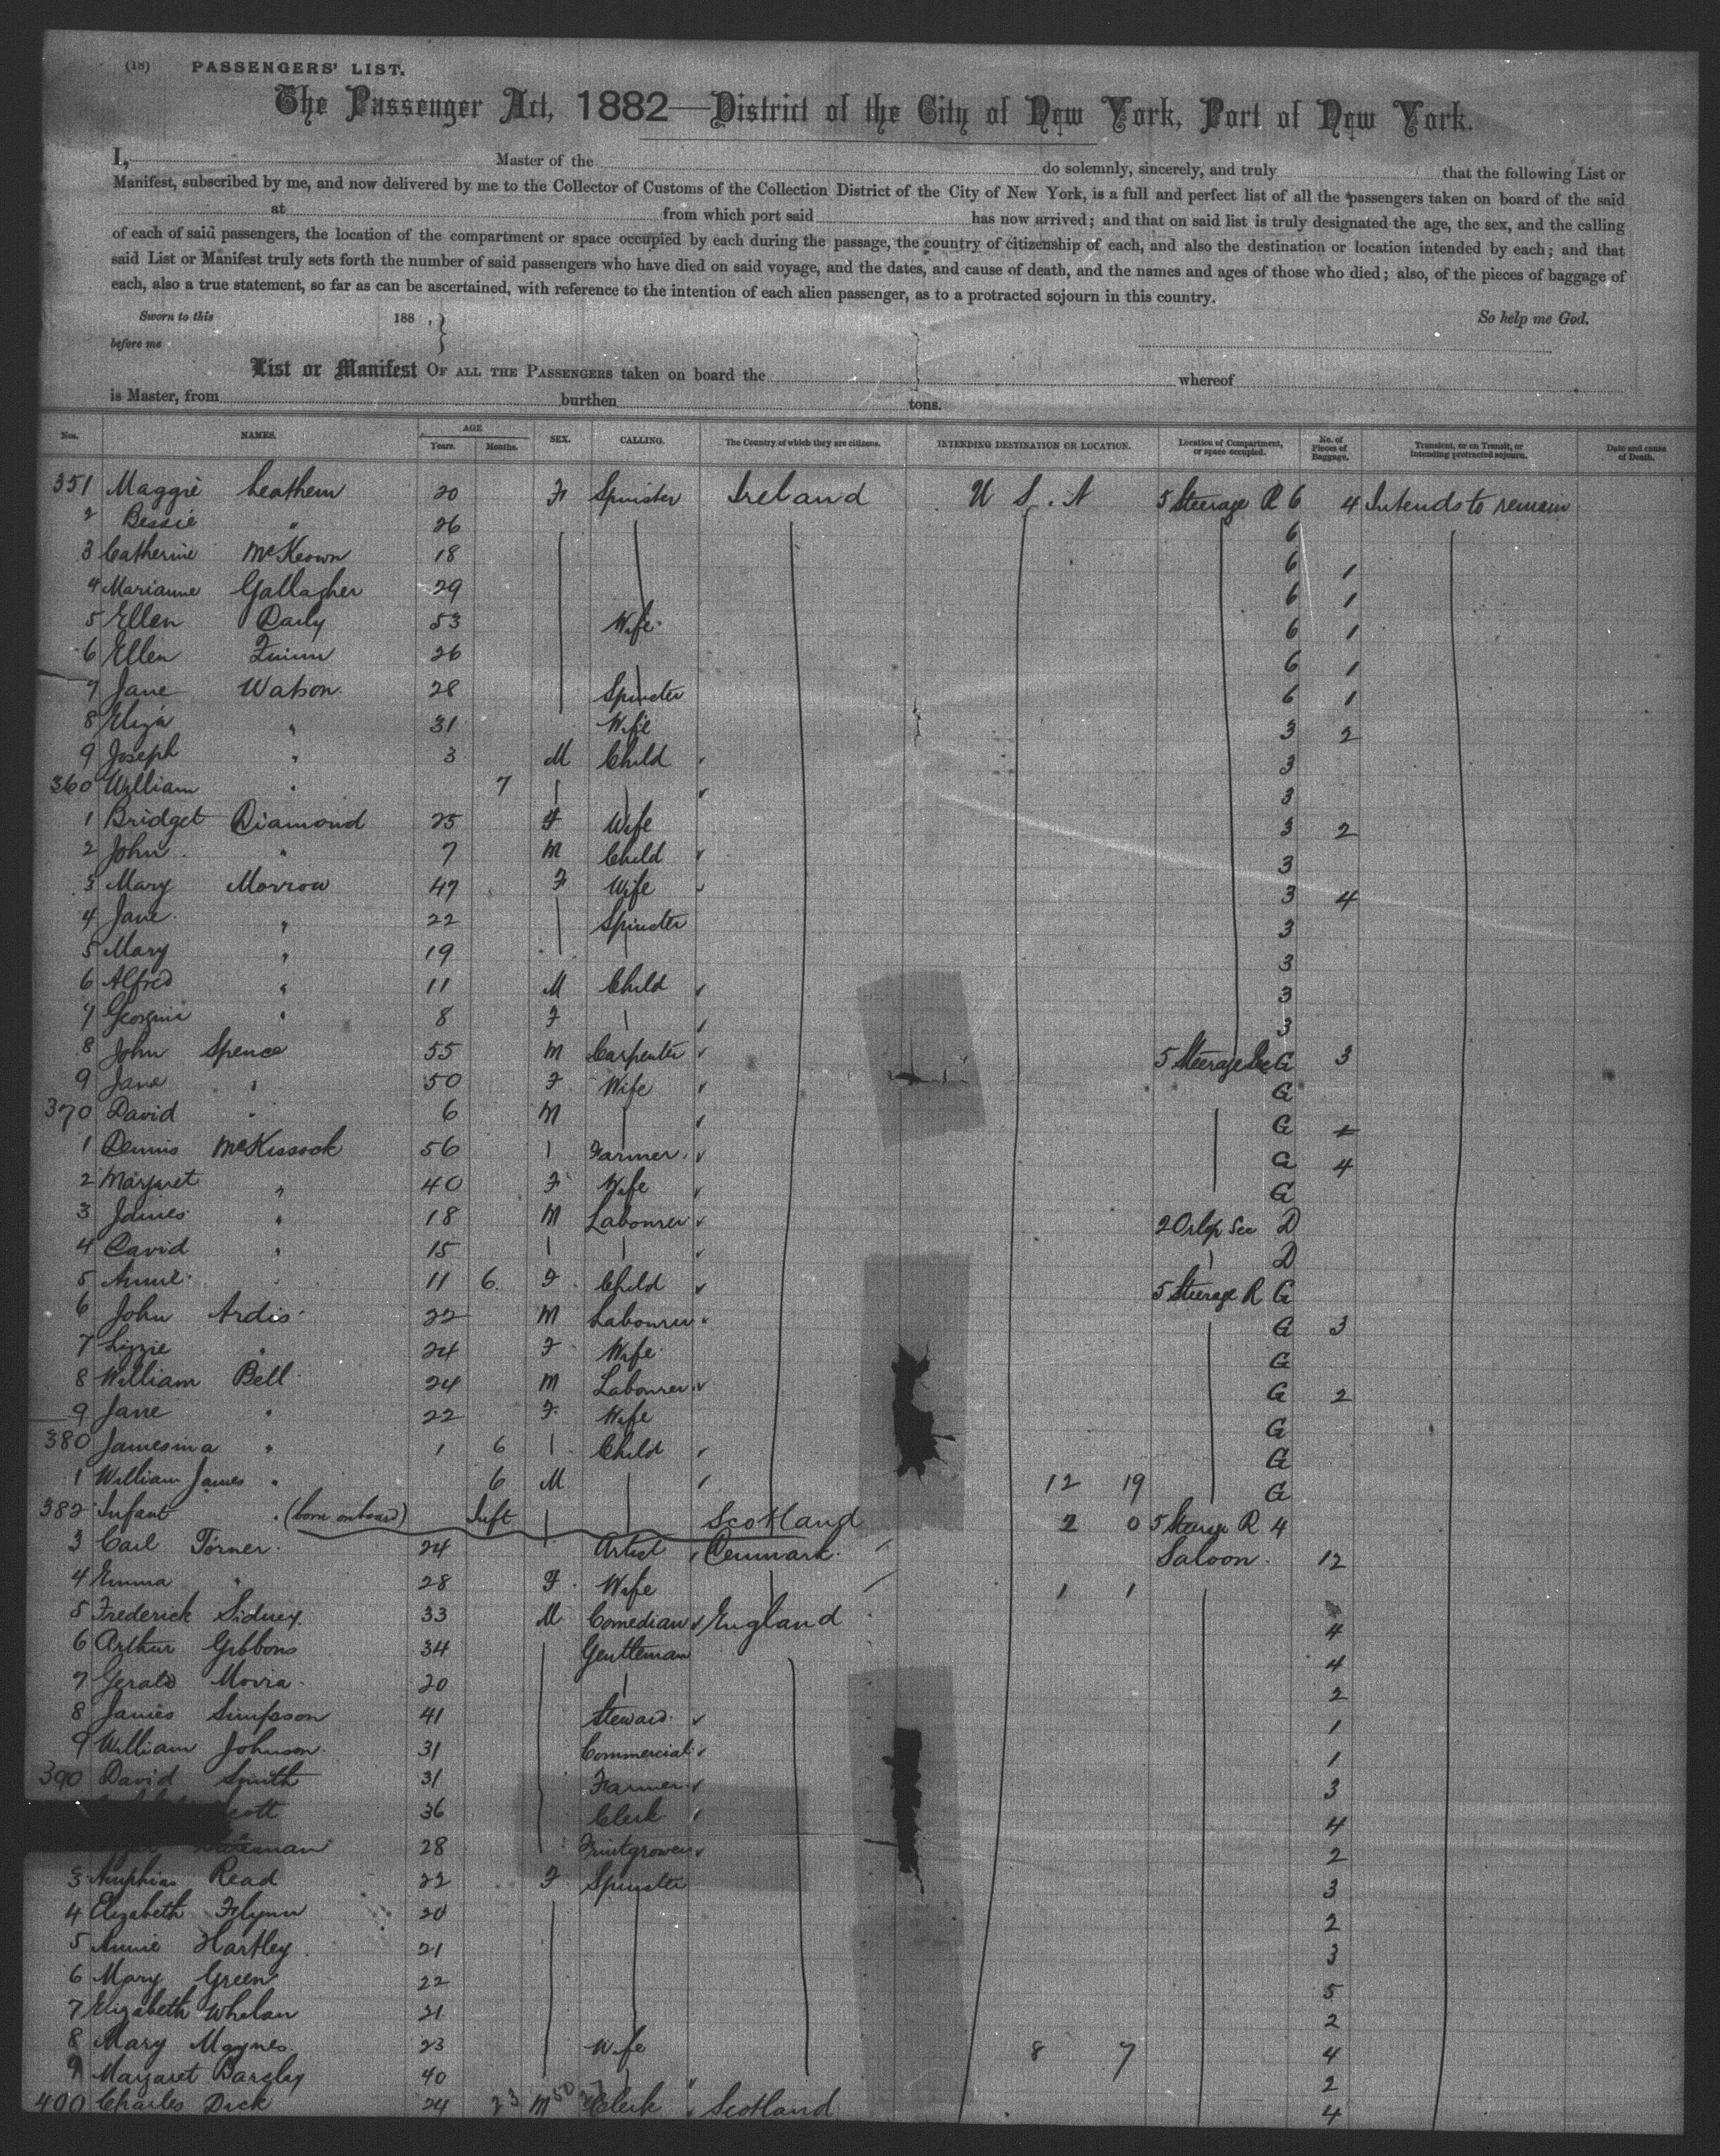 (18) PASSENGERS' LIST.
The Passenger Act, 1882—District of the City of New York, Port of New York.
I, Master of the do solemnly, sincerely, and truly that the following List or
Manifest, subscribed by me, and now delivered by me to the Collector of Customs of the Collection District of the City of New York, is a full and perfect list of all the passengers taken on board of the said
at from which port said has now arrived; and that on said list is truly designated the age, the sex, and the calling
of each of said passengers, the location of the compartment or space occupied by each during the passage, the country of citizenship of each, and also the destination or location intended by each; and that
said List or Manifest truly sets forth the number of said passengers who have died on said voyage, and the dates, and cause of death, and the names and ages of those who died; also, of the pieces of baggage of
each, also a true statement, so far as can be ascertained, with reference to the intention of each alien passenger, as to a protracted sojourn in this country.
Sworn to this 188 , } So help me God.
before me
List or Manifest OF ALL THE PASSENGERS taken on board the whereof
is Master, from burthen tons.
Nos. NAMES. AGE Years. Months. SEX. CALLING. The Country of which they are citizens. INTENDING DESTINATION OR LOCATION. Location of Compartment, or space occupied. No. of Pieces of Baggage. Transient, or on Transit, or intending protracted sojourn. Date and cause of Death.
351 Maggie Leathem 20 F Spinster Ireland U S. A 5 Steerage R 6 4 Intends to remain
2 Bessie " 26 6
3 Catherine McKeown 18 6 1
4 Marianne Gallagher 29 6 1
5 Ellen Daily 53 Wife 6 1
6 Ellen Quinn 26 6 1
7 Jane Watson 28 Spinster 6 1
8 Eliza " 31 Wife 3 2
9 Joseph " 3 M Child 3
360 William " 7 3
1 Bridget Diamond 25 F Wife 3 2
2 John " 7 M Child 3
3 Mary Morrow 47 F Wife 3 4
4 Jane " 22 Spinster 3
5 Mary " 19 3
6 Alfred " 11 M Child 3
7 Georgina " 8 F 3
8 John Spence 55 M Carpenter 5 Steerage Sec G 3
9 Jane " 50 F Wife G
370 David " 6 M G
1 Dennis McKissock 56 Farmer G 4
2 Margaret " 40 F Wife G
3 James " 18 M Labourer 2 Orlop Sec D
4 David " 15 D
5 Annie " 11 6 F Child 5 Steerage R G
6 John Ardis 22 M Labourer G 3
7 Lizzie " 24 F Wife G
8 William Bell 24 M Labourer G 2
9 Jane " 22 F Wife G
380 Jamesina " 1 6 Child G
1 William James " 6 M 12 19 G
382 Infant " (born onboard) Inft Scotland 2 0 5 Steerage R 4
3 Carl Törner 24 Artist Denmark Saloon 12
4 Emma " 28 F Wife 1 1
5 Frederick Sidney 33 M Comedian England 4
6 Arthur Gibbons 34 Gentleman 4
7 Gerald Movra 20 2
8 James Simpson 41 Steward 1
9 William Johnson 31 Commercial 1
390 David Smith 31 Farmer 3
Scott 36 Clerk 4
28 Fruitgrower 2
3 Read 22 F Spinster 3
4 Elizabeth Flynn 20 2
5 Annie Hartley 21 3
6 Mary Green 22 5
7 Elizabeth Whelan 21 2
8 Mary Maynes 23 Wife 8 7 4
9 Margaret Bargley 40 2
400 Charles Dick 24 23 M 50 Clerk Scotland 4